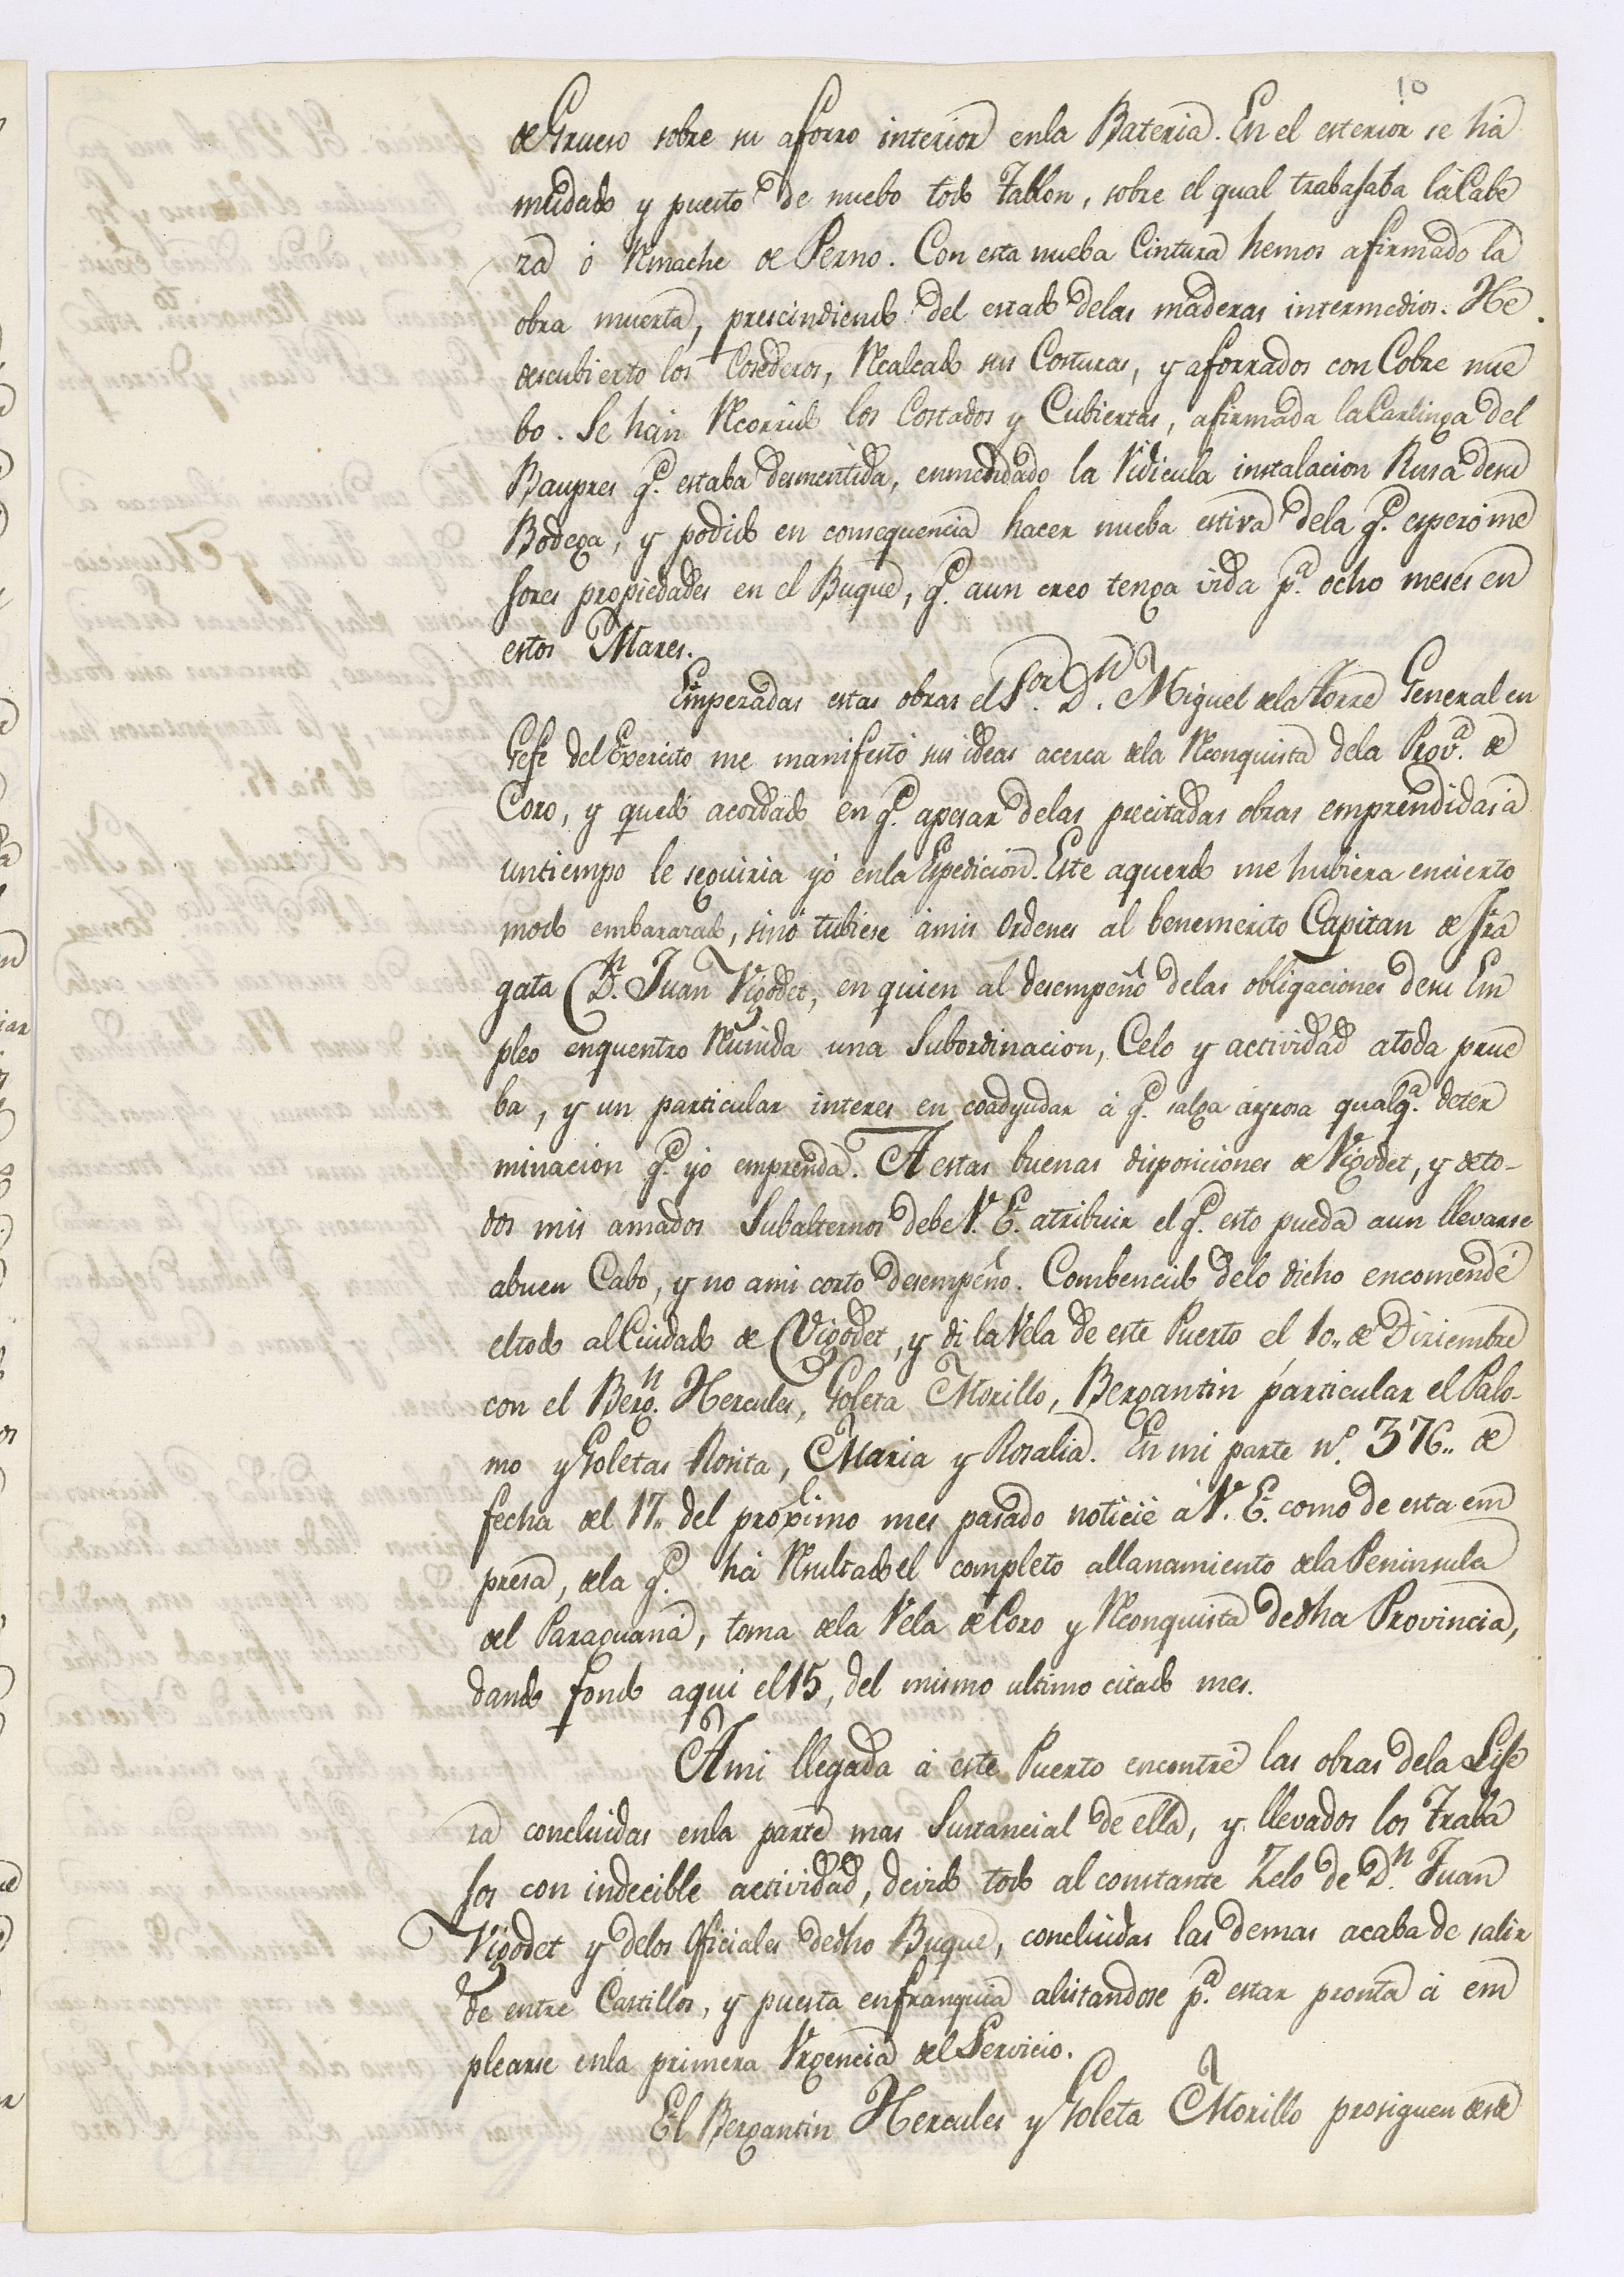 10
de Grueso sobre su aforro interior enla Bateria. En el esterior se há
mudado y puesto de nuebo todo Tablon, sobre el qual trabajaba la Cabe
za ó Remache de Perno. Con esta nueba Cintura hemos afirmado la
obra muerta, prescindiendo del estado delas maderas intermedios. Hé
descubierto los Cosederos, Recalcado sus Costuras, y aforrados con Cobre nue
bo. Se hán Recorrido los Costados y Cubiertas, afirmada la Carlinga del
Baupres q.e estaba desmentida, enmendado la Ridicula instalacion Rusa desu
Bodega, y podido en consequencia hacer nueba estiva dela q.e espero me
jores propiedades en el Buque, q.e aun creo tenga vida p.a ocho meses en
estos Mares.
Empezadas estas obras el S.or D.n Miguel dela Torre General en
Gefe del Exercito me manifestó sus ideas acerca dela Reconquista dela Prov.a de
Coro, y quedó acordado en q.e apesar delas precitadas obras emprendidas á
untiempo le seguiria yó enla Espedicion. Este aquerdo me hubiera encierto
modo embarazado, sinó tubiese ámis Ordenes al benemérito Capitan de Fra
gata D.n Juan Vigodet, en quien al desempeño delas obligaciones desu Em
pleo enquentro Reunida una Subordinacion, Celo y actividad atoda prue
ba, y un particular interes en coadyudar á q.e salga ayrosa qualq.a deter
minacion q.e yó emprenda. A estas buenas disposiciones de Vigodet, y deto-
dos mis amados Subalternos debe V. E. atribuir el q.e esto pueda aun llevarse
abuen Cabo, y no ami corto desempeño. Combencido delo dicho encomendé
eltodo al Cuidado de Vigodet, y di la Vela de este Puerto el 10,, de Diziembre
con el Berg.n Hercules, Goleta Morillo, Bergantin particular el Palo-
mo y Goletas Rosita, Maria y Rosalia. En mi parte n.o 376,, de
fecha del 17,, del próximo mes pasado noticié á V. E. como de esta em
presa, dela q.e há Resultado el completo allanamiento dela Peninsula
del Paraguaná, toma dela Vela de Coro y Reconquista dedha Provincia,
dando fondo aqui el 15,, del mismo ultimo citado mes.
Ami llegada á este Puerto encontré las obras dela Lige
ra concluidas enla parte mas Sustancial de ella, y llevados los Traba
jos con indecible actividad, devido todo al constante Zelo de D.n Juan
Vigodet y delos Oficiales dedho Buque, concluidas las demas acaba de salir
de entre Castillos, y puesta enfranquia alistandose p.a estar pronta á em
plearse enla primera Urgencia del Servicio.
El Bergantin Hercules y Goleta Morillo prosiguen desde